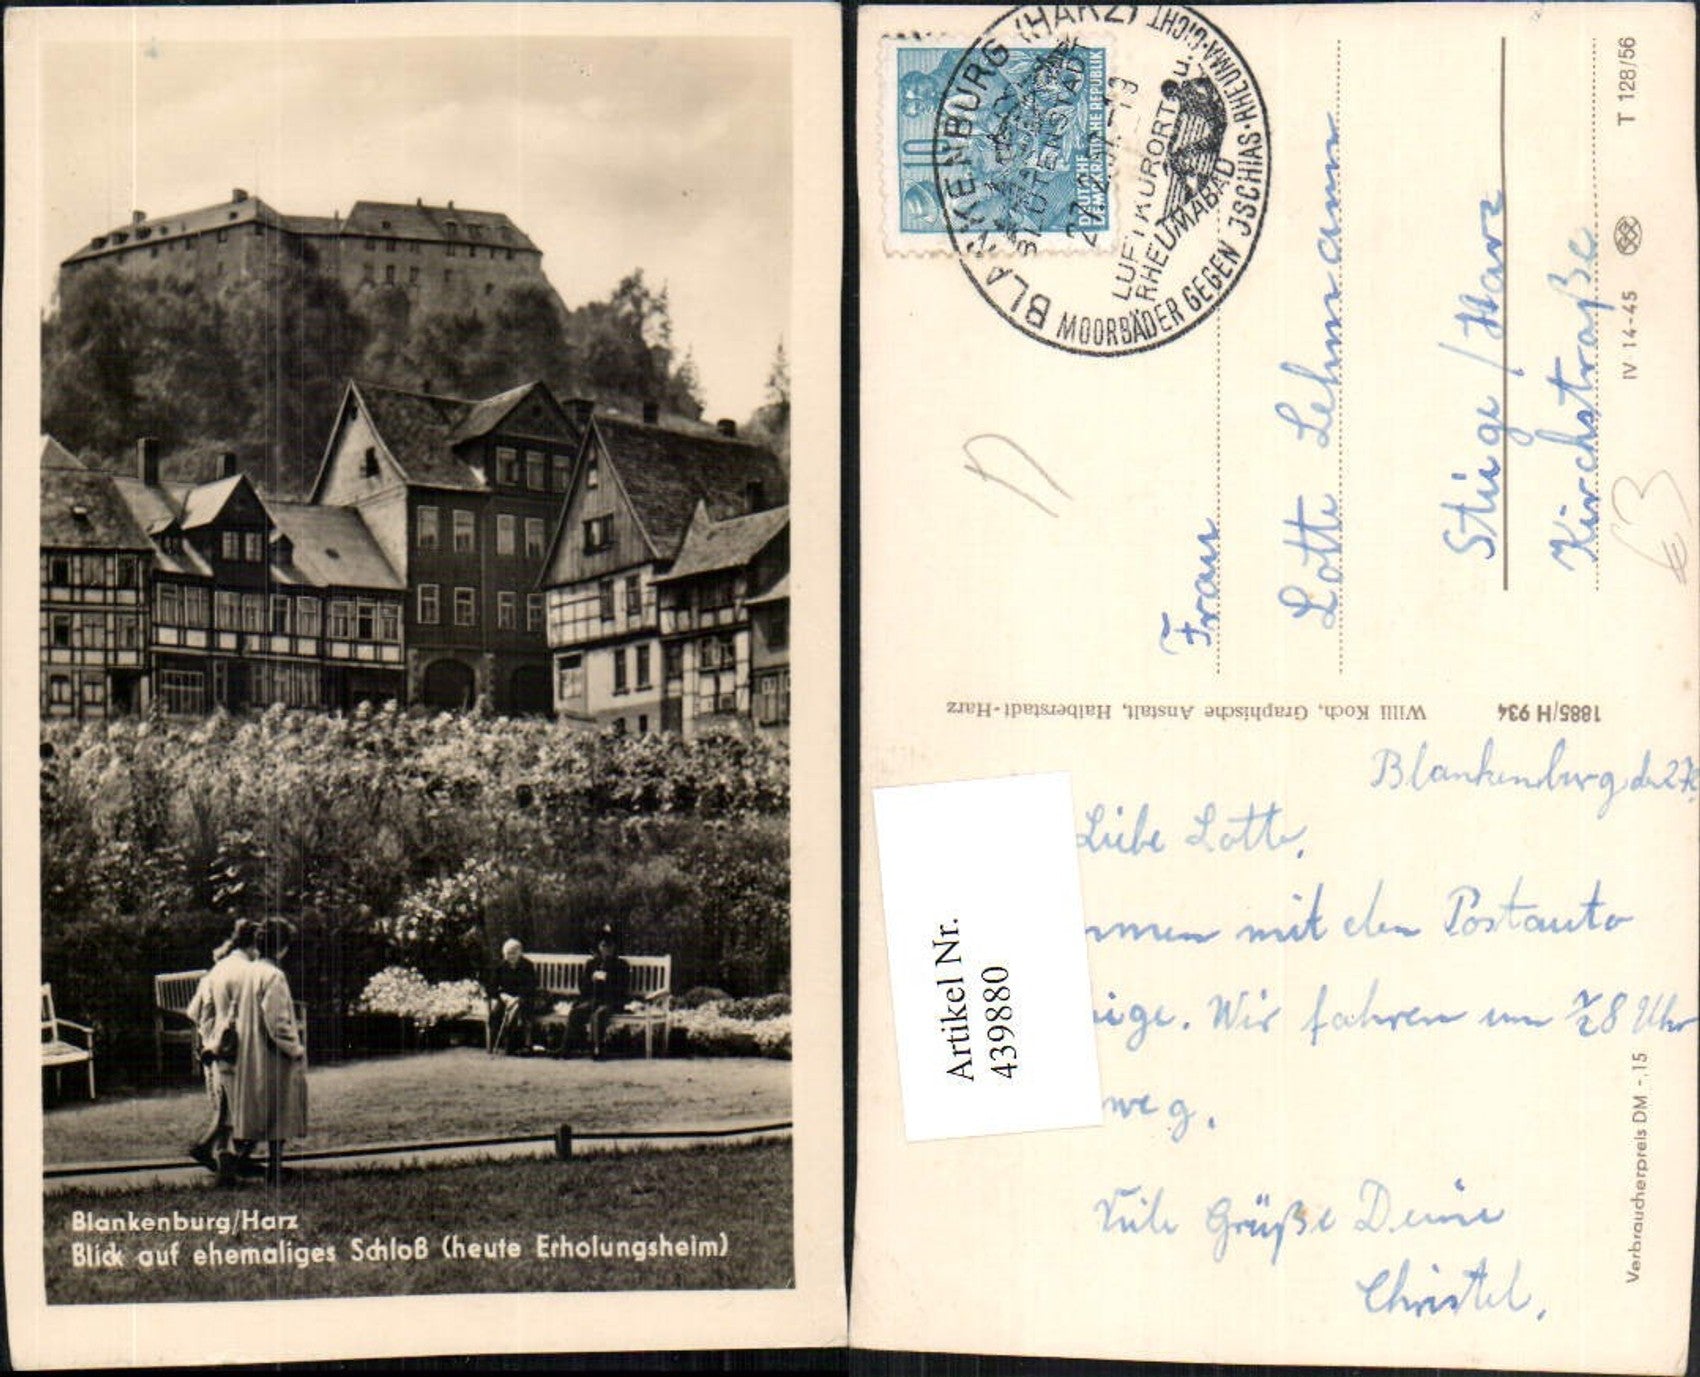 Blankenburg/Harz
Blick auf ehemaliges Schloß (heute Erholungsheim)
10
DEUTSCHE
DEMOKRATISCHE REPUBLIK
BLANKENBURG (HARZ)
BLÜTENSTADT
LUFTKURORT u.
RHEUMABAD
MOORBÄDER GEGEN ISCHIAS·RHEUMA·GICHT
Frau
Lotte Lehmann
Stiege/Harz
Kirchstraße
T 128/56
IV 14-45
Willi Koch, Graphische Anstalt, Halberstadt-Harz
1885/H 934
Blankenburg d. 27.
Liebe Lotte,
mmen mit den Postauto
ige. Wir fahren um ½8 Uhr
weg.
Viele Grüße Deine
Christel.
Verbraucherpreis DM -,15
Artikel Nr.
439880